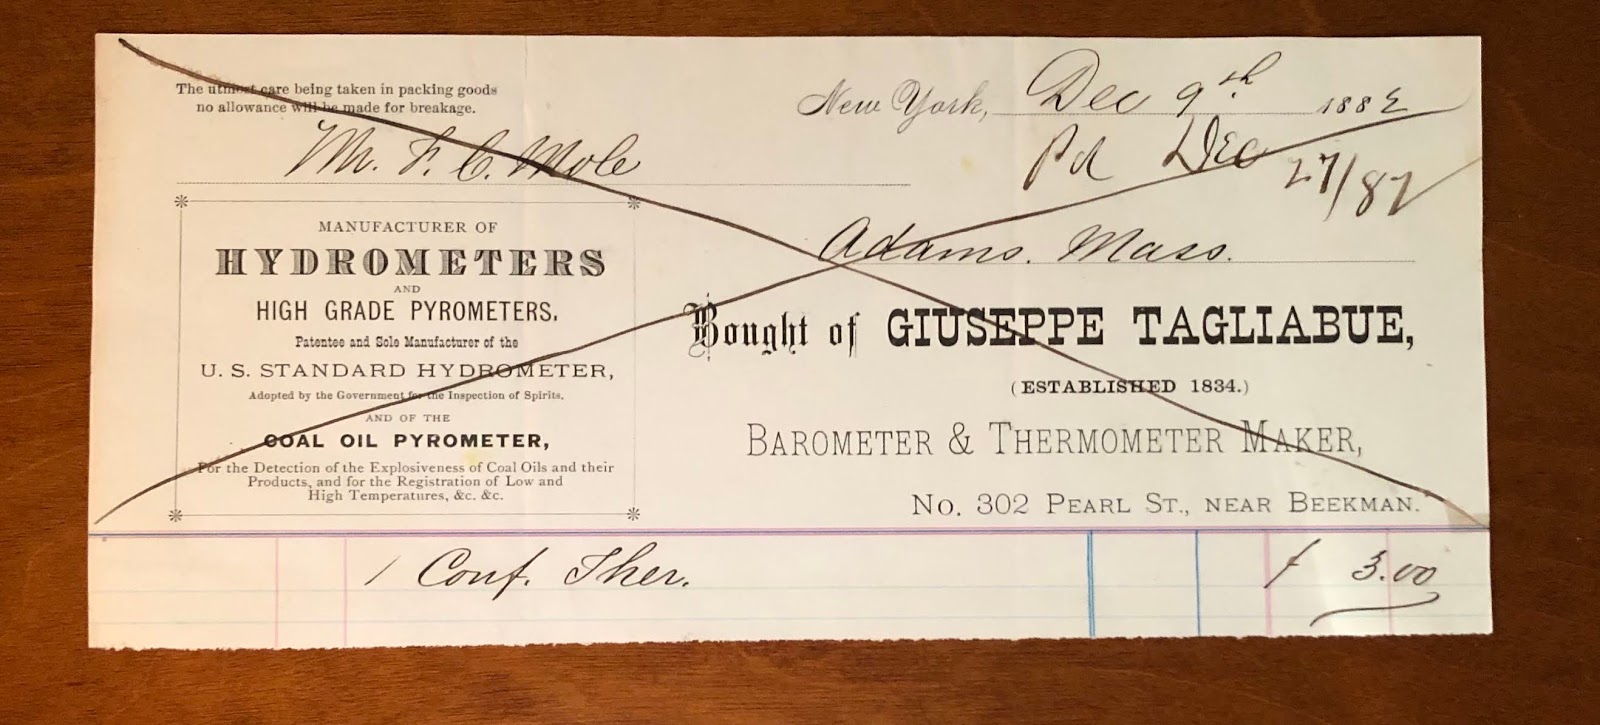 The utmost care being taken in packing goods
no allowance will be made for breakage.
New York, Dec 9th 1882
Pd Dec 27/82
Mr. F. C. Mole
Adams. Mass.
MANUFACTURER OF
HYDROMETERS
AND
HIGH GRADE PYROMETERS.
Patentee and Sole Manufacturer of the
U. S. STANDARD HYDROMETER,
Adopted by the Government for the Inspection of Spirits.
AND OF THE
COAL OIL PYROMETER,
For the Detection of the Explosiveness of Coal Oils and their
Products, and for the Registration of Low and
High Temperatures, &c. &c.
Bought of GIUSEPPE TAGLIABUE,
(ESTABLISHED 1834.)
BAROMETER & THERMOMETER MAKER,
No. 302 PEARL ST., NEAR BEEKMAN.
1 Conf. Ther. 3.00